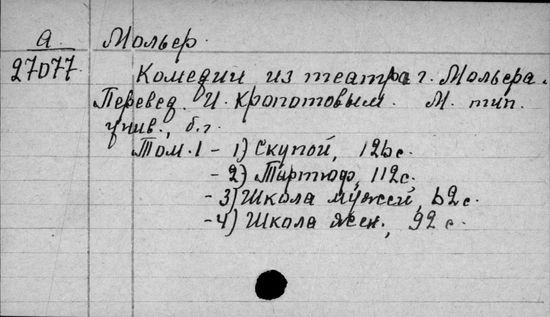 а. Мольер.
27077.
Комедии из театра г. Мольера.
Перевед. И. Кропотовым. М. тип.
унив., б.г.
Том. 1 - 1) Скупой, 126 с.
- 2) Тартюф, 112 с.
- 3) Школа мужей, 62 с.
- 4) Школа жен., 92 с.